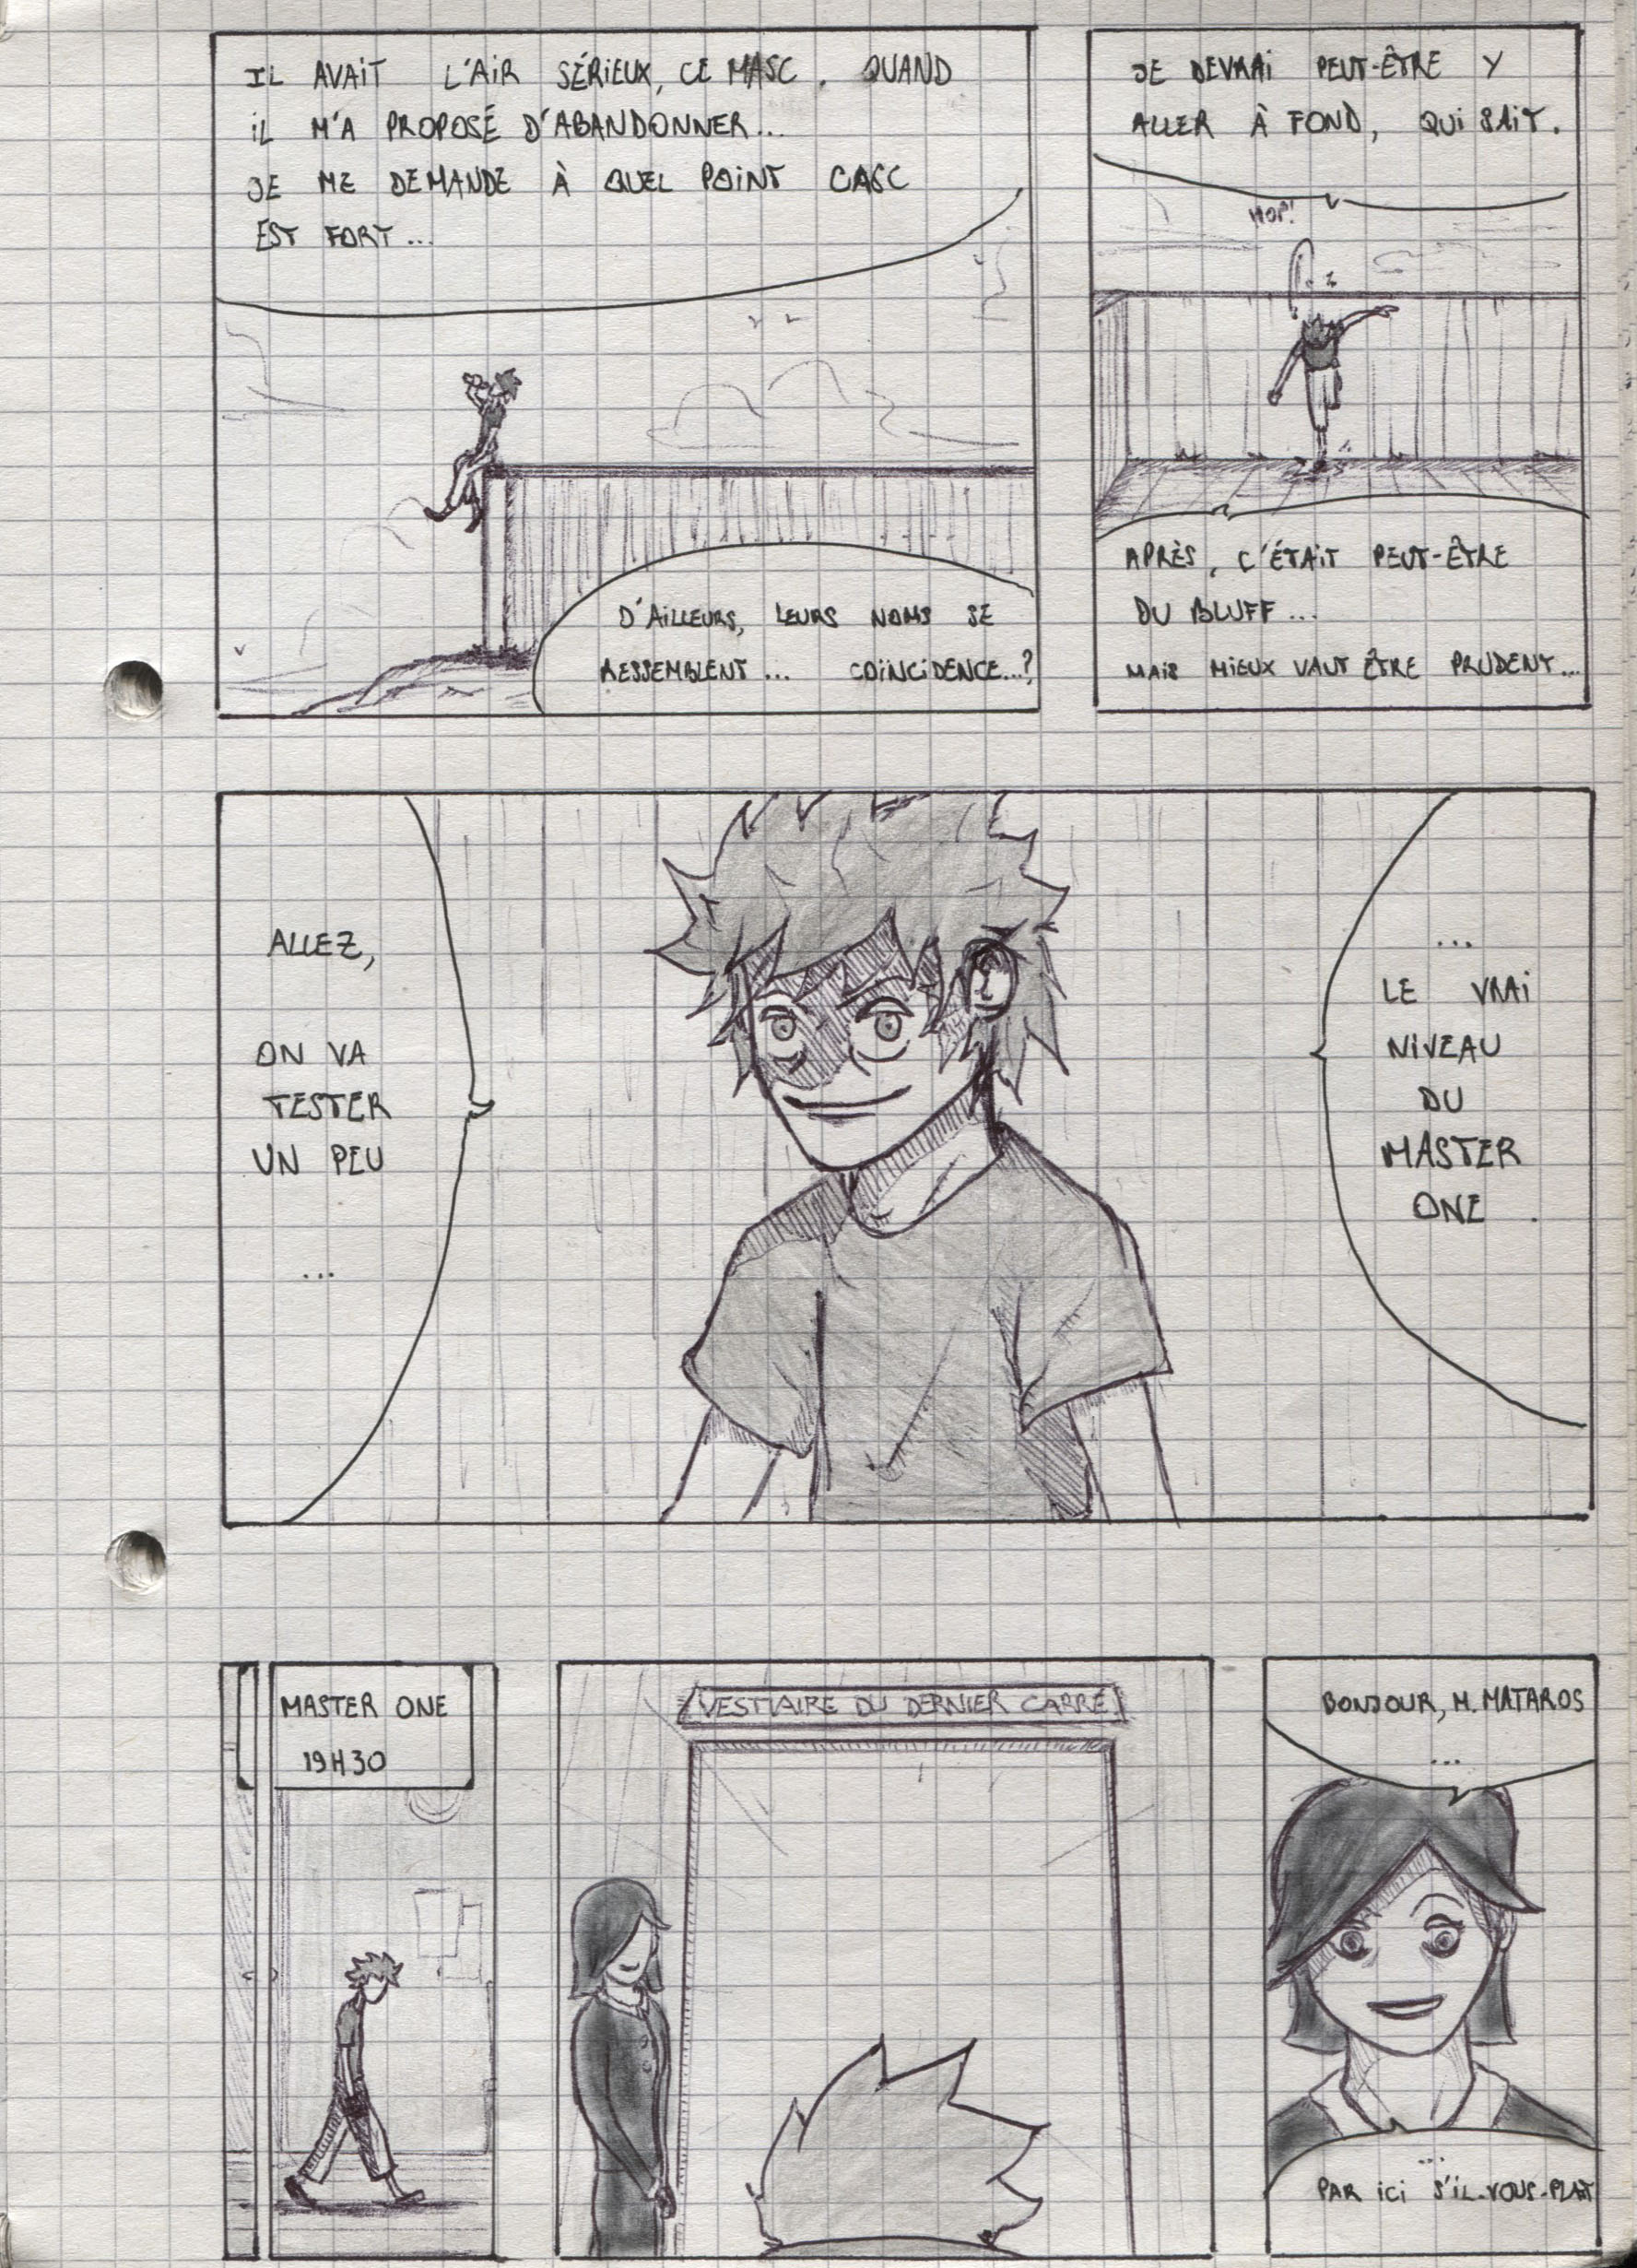 IL AVAIT L'AIR SÉRIEUX, CE MASC. QUAND
IL M'A PROPOSÉ D'ABANDONNER...
JE ME DEMANDE À QUEL POINT CASC
EST FORT...
D'AILLEURS, LEURS NOMS SE
RESSEMBLENT... COÏNCIDENCE...?
JE DEVRAI PEUT-ÊTRE Y
ALLER À FOND, QUI SAIT.
HOP!
APRÈS, C'ÉTAIT PEUT-ÊTRE
DU BLUFF...
MAIS MIEUX VAUT ÊTRE PRUDENT...
ALLEZ,
ON VA
TESTER
UN PEU
...
...
LE VRAI
NIVEAU
DU
MASTER
ONE.
MASTER ONE
19H30
VESTIAIRE DU DERNIER CARRÉ
BONJOUR, M. MATAROS
...
...
PAR ICI S'IL-VOUS-PLAÎT